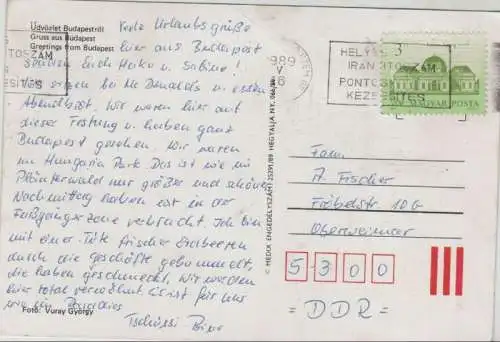 Üdvözlet Budapestről
Gruss aus Budapest
Greetings from Budapest
Urlaubsgrüße
hier aus Budapest
senden Euch Heiko u. Sabine!
Wir sitzen bei Mc Donalds u. essen
Abendbrot. Wir waren hier auf
dieser Festung u. haben ganz
Budapest gesehen. Wir waren
im Hungaria Park. Das ist wie im
Plänterwald nur größer und schöner.
Nachmittag haben wir in der
Fußgängerzone verbracht. Ich bin
mit einer Tüte frischer Erdbeeren
durch die Geschäfte gebummelt,
die haben geschmeckt. Wir werden
hier total verwöhnt. Es ist für uns
wie im Paradies
Tschüssi
Foto: Vuray György
© MEDIX ENGEDÉLYSZÁM 25291/89 HEGYALJA NY.
TOSZÁM
SÍTÉS
1989
HELYES
IRÁNYÍTÓSZÁM
PONTOS
KÉZBESÍTÉS
3
MAGYAR POSTA
Fam.
A. Fischer
Fröbelstr. 10G
Oberweimar
5300
= DDR =